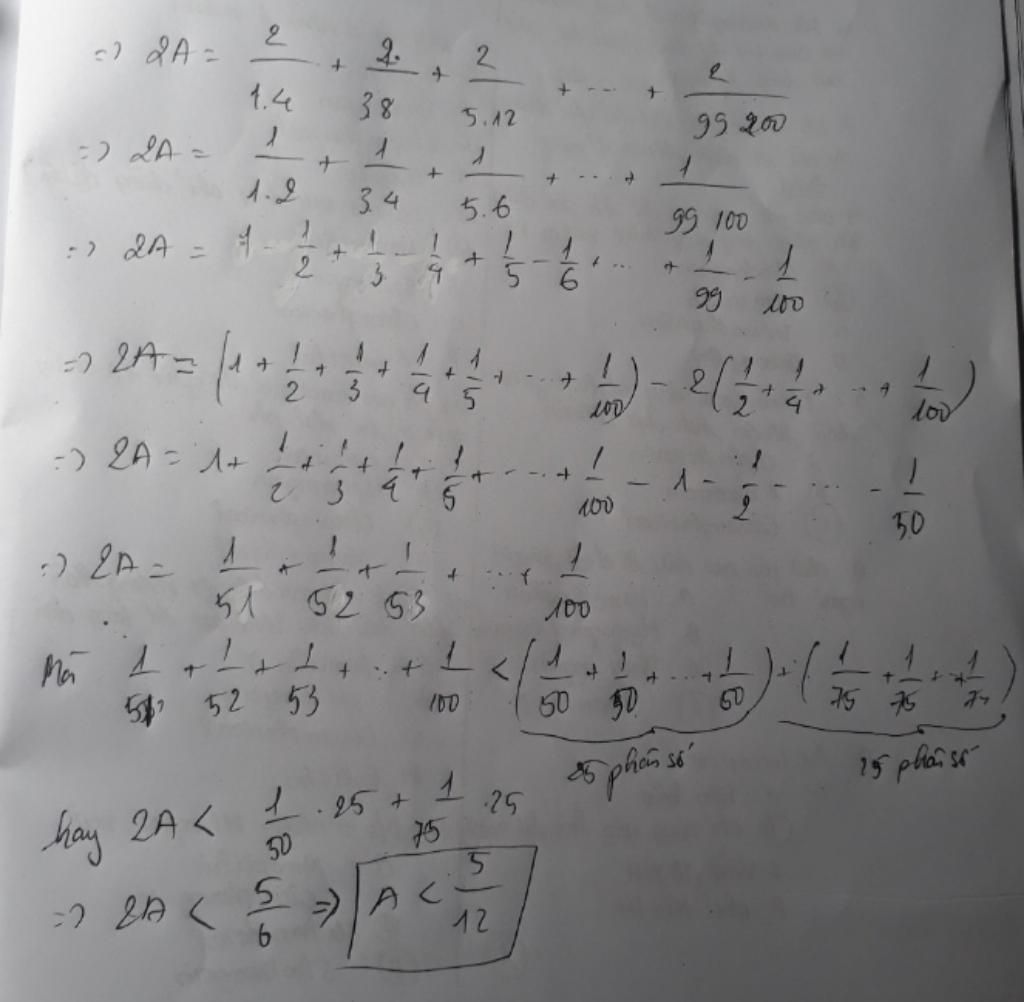 => 2A = 2/1.4 + 2/3 8 + 2/5.12 + ... + 2/99 200
=> 2A = 1/1.2 + 1/3.4 + 1/5.6 + ... + 1/99 100
=> 2A = 1 - 1/2 + 1/3 - 1/4 + 1/5 - 1/6 + ... + 1/99 - 1/100
=> 2A = (1 + 1/2 + 1/3 + 1/4 + 1/5 + ... + 1/100) - 2(1/2 + 1/4 + ... + 1/100)
=> 2A = 1 + 1/2 + 1/3 + 1/4 + 1/5 + ... + 1/100 - 1 - 1/2 - ... - 1/50
=> 2A = 1/51 + 1/52 + 1/53 + ... + 1/100
Mà 1/51 + 1/52 + 1/53 + ... + 1/100 < (1/50 + 1/50 + ... + 1/50) + (1/75 + 1/75 + ... + 1/75)
25 phân số 25 phân số
hay 2A < 1/50 . 25 + 1/75 . 25
=> 2A < 5/6 => A < 5/12